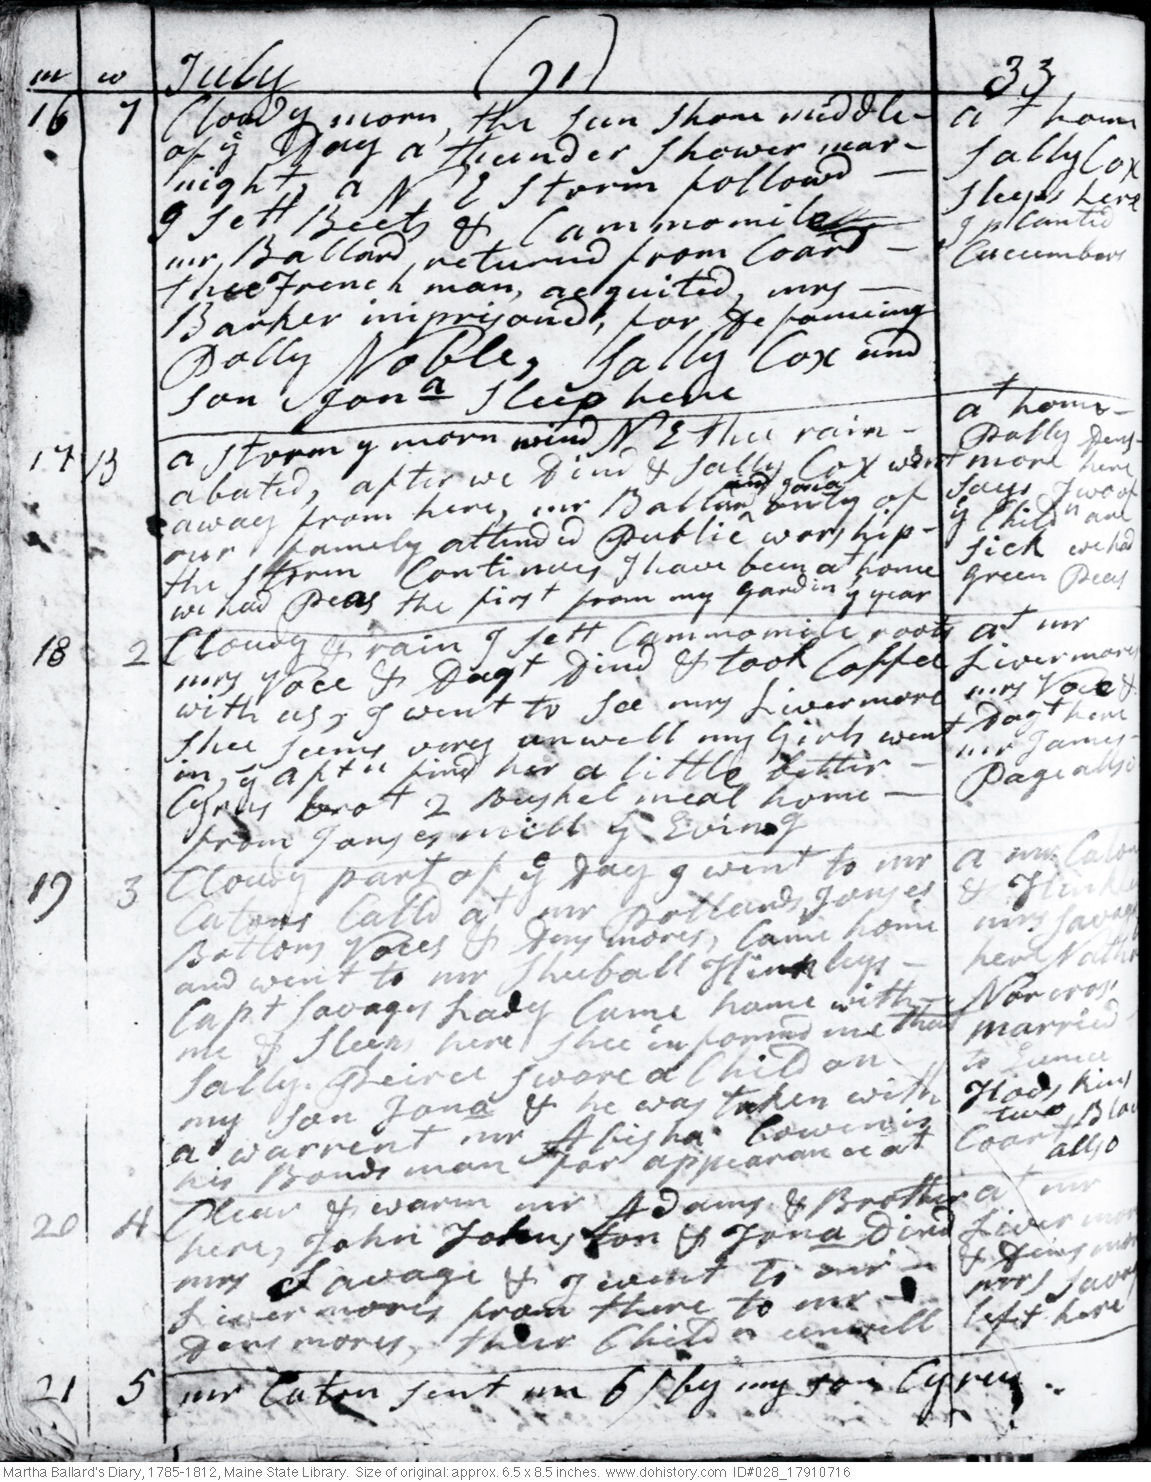 m w July (91) 33
16 7 Cloudy morn, the sun shone middle- at home
of ÿ Day a thunder shower near- Sally Cox
night, a N E storm followd — sleeps here
I sett Beets & Cammomile I plantid
mr Ballard returnd from Coart — Cucumbers
thee French man, acquited, mrs —
Barker imprisond, for defameing
Dolly Noble, Sally Cox and
son Jona sleep here
17 B a stormy morn wind N E thee rain - at home-
abated, after we Dind & Sally Cox went Polly Dens-
away from here, mr Ballard and Jona only of more here
our family attended Public worship - says Two of
the storm Continues I have been at home ÿ Childn are
we had Peas the first from my gardin ÿ year sick we had
green Peas
18 2 Cloudy & rain I sett Cammomile roots at mr
mrs Voce & Dagt Dind & took Coffee Livermores
with us, I went to see mrs Livermore mrs Voce &
shee seems very unwell my Girls went Dagt here
in ÿ aftn find her a little better — mr James
Cyrus brot 2 Bushel meal home — Page allso
from Jonses mill ÿ Eving
19 3 Cloudy part of ÿ Day I went to mr a mr Caton
Catons Calld at mr Pollards, Jonses & Hinkley
Bottons Voces & Densmores, Came home mrs Savage
and went to mr Sheeball Hinkleys — here Nathn
Capt Savages Lady Came home with — Norcros
me & sleeps here shee informd me that married
Sally Peirce swore a Child on to Eunice
my son Jona & he was taken with Hods kins
a warrent mr Abisha Cowen is two, Blow
his Bonds man for appearance at Coart allso
20 4 Clear & warm mr Adams & Brother at mr
here, John Johnston & Jona Dind Livermores
mrs Savage & I went to mr — & Densmores
Livermores from there to mr — mrs Savage
Densmores, their Childn unwell left here
21 5 mr Caton sent me 6/ by my son Cyrus
Martha Ballard's Diary, 1785-1812, Maine State Library. Size of original: approx. 6.5 x 8.5 inches. www.dohistory.com ID#028_17910716